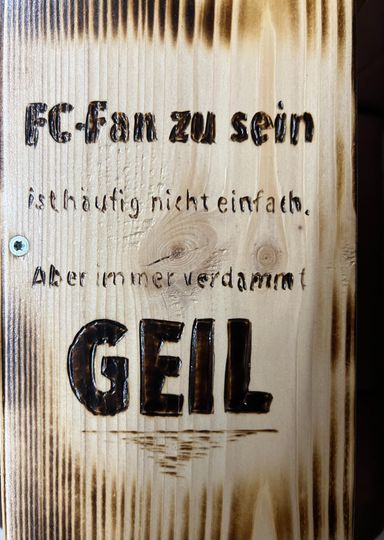 FC-Fan zu sein
ist häufig nicht einfach.
Aber immer verdammt
GEIL